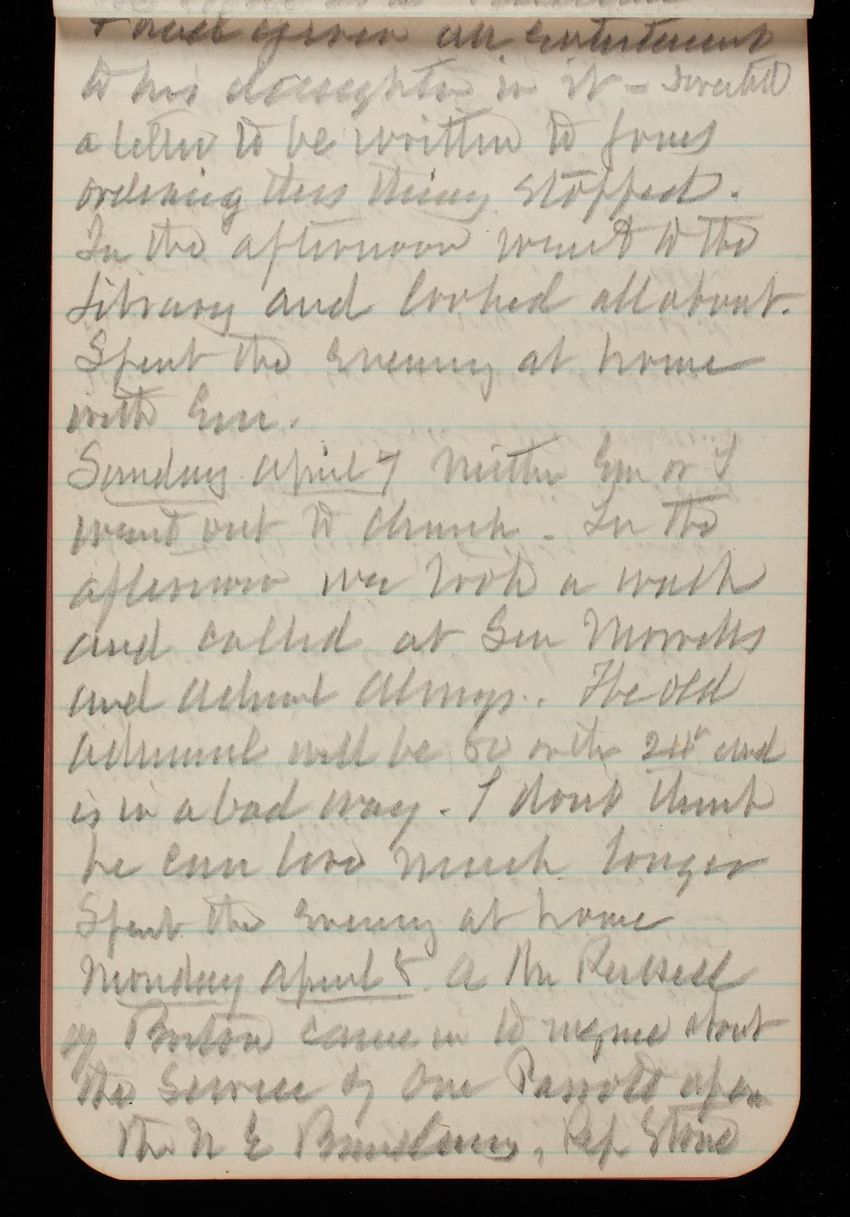 & had given an entertainment
to his daughter in it - directed
a letter to be written to Jones
ordering this thing stopped.
In the afternoon went to the
Library and looked all about.
Spent the evening at home
with Em.
Sunday April 7 Neither Em or I
went out to church. In the
afternoon we took a walk
and called at Gen
and Admiral. The old
Admiral will be 80 on the 24th and
is in a bad way. I dont think
he can live much longer
Spent the evening at home
Monday April 8. A Mr Russell
of Boston came in to inquire about
the Service of one Parrott upon
the N E Boundary, Rep Stone